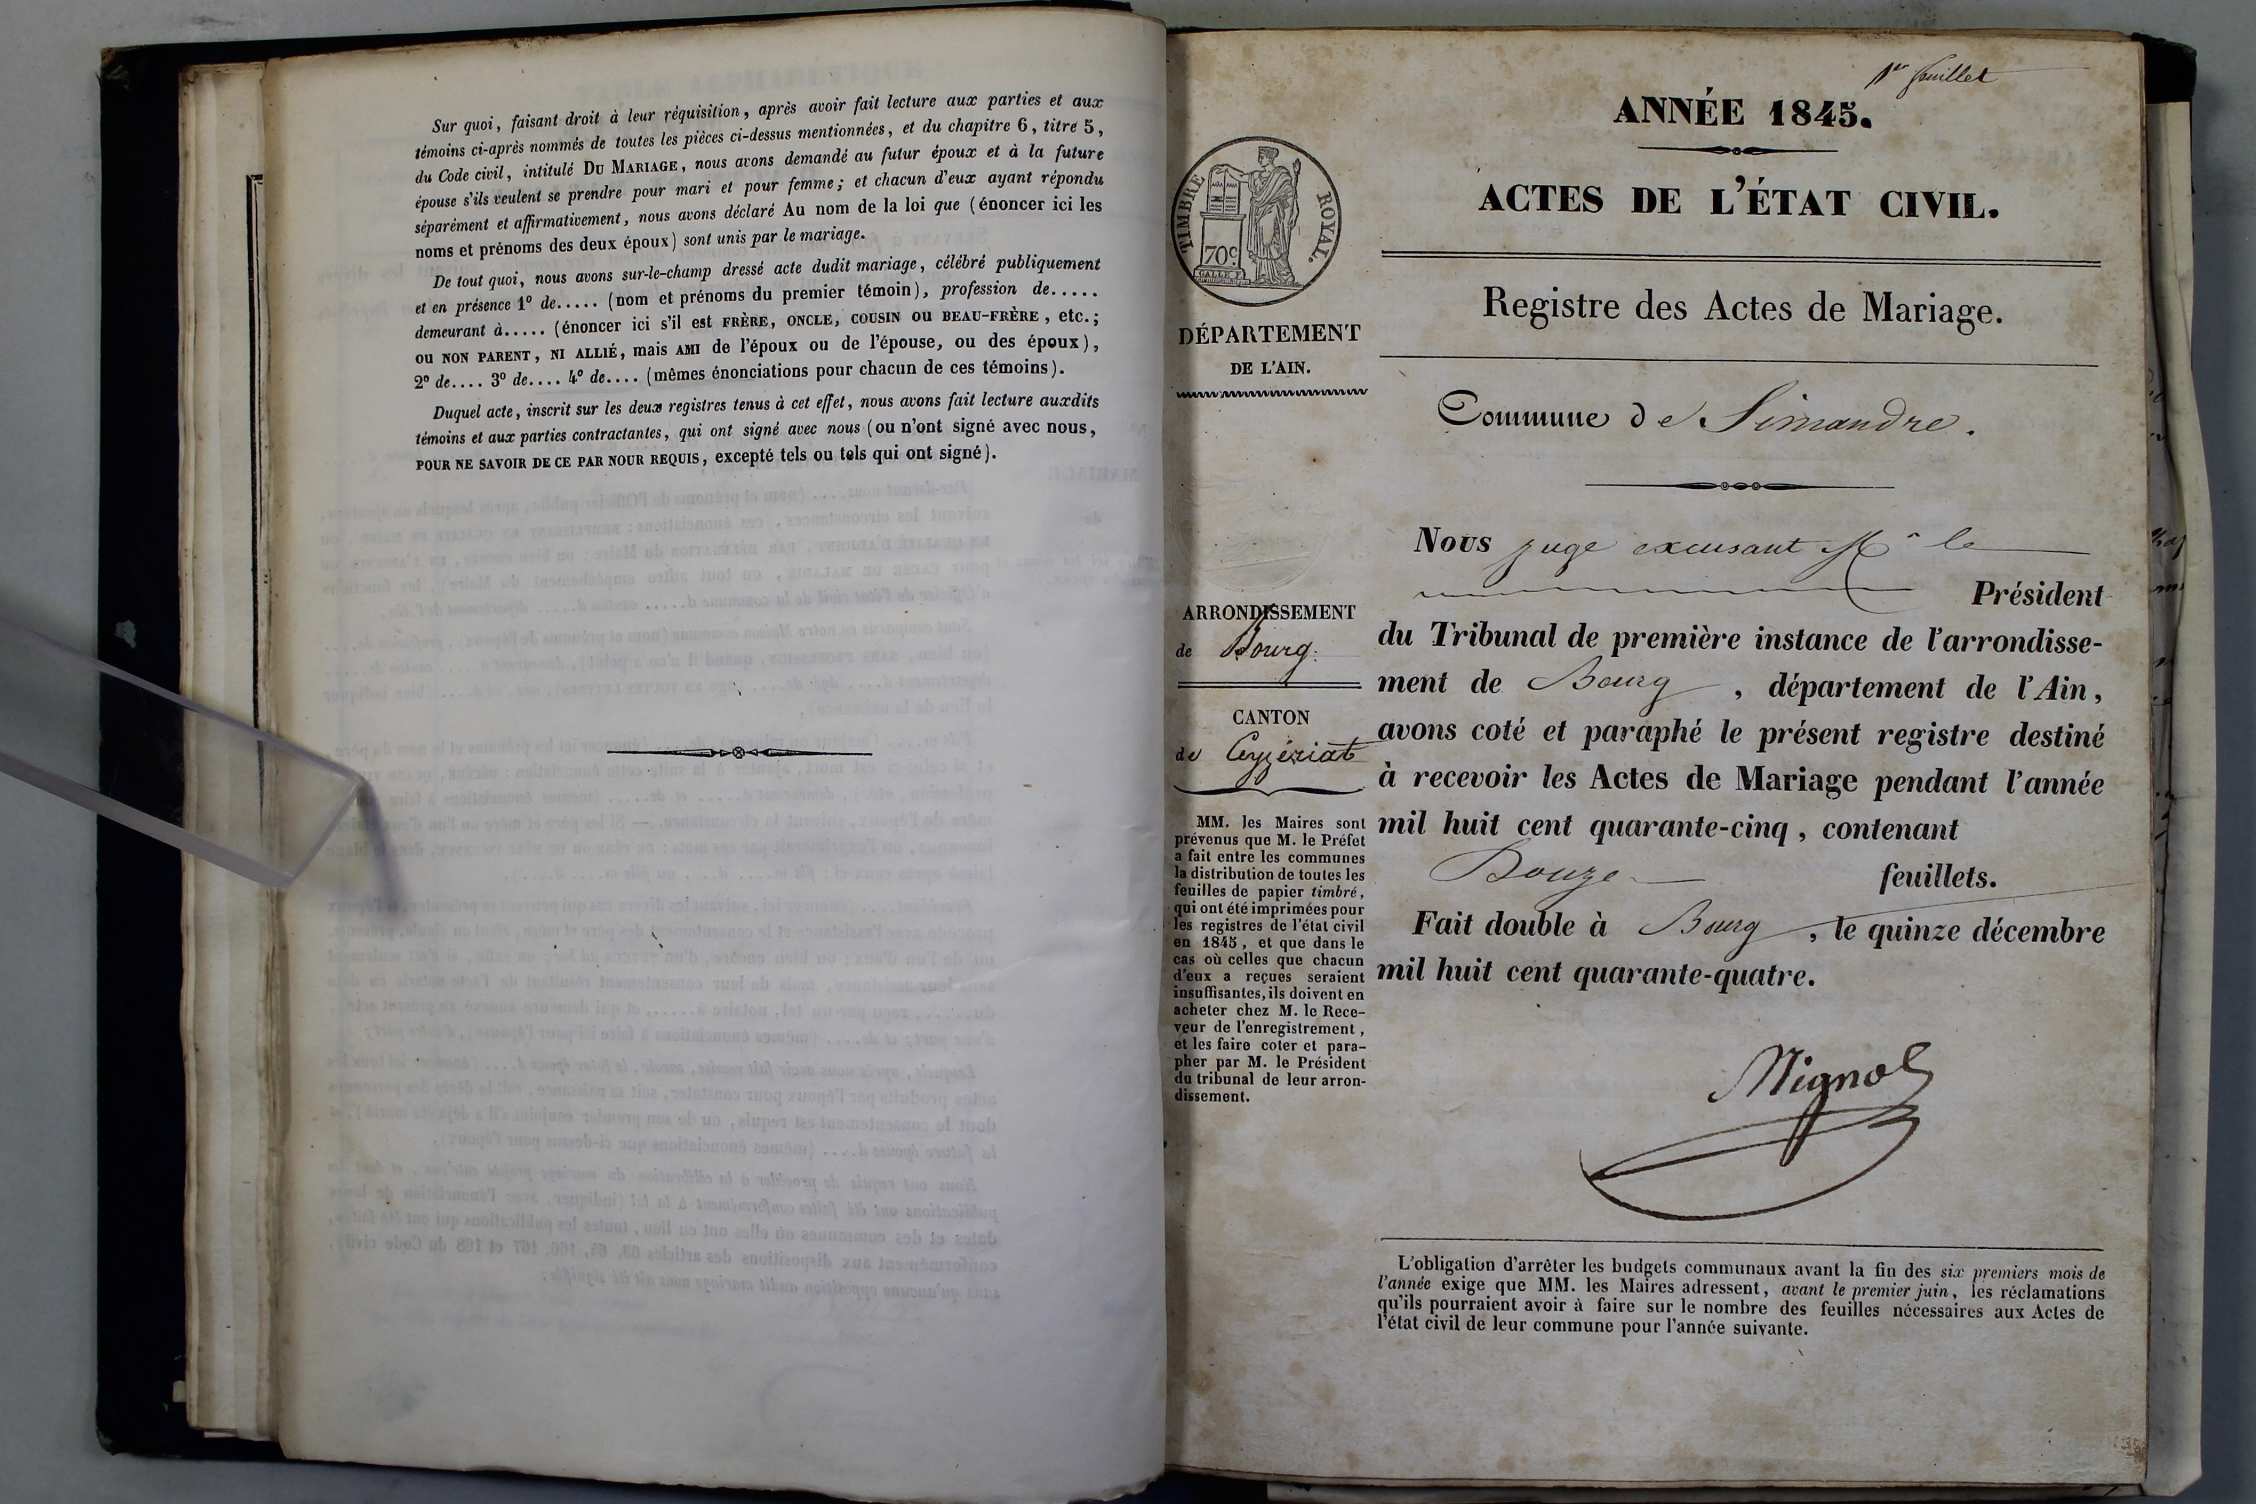 Sur quoi, faisant droit à leur réquisition, après avoir fait lecture aux parties et aux
témoins ci-après nommés de toutes les pièces ci-dessus mentionnées, et du chapitre 6, titre 5,
du Code civil, intitulé DU MARIAGE, nous avons demandé au futur époux et à la future
épouse s'ils veulent se prendre pour mari et pour femme; et chacun d'eux ayant répondu
séparément et affirmativement, nous avons déclaré Au nom de la loi que (énoncer ici les
noms et prénoms des deux époux) sont unis par le mariage.
De tout quoi, nous avons sur-le-champ dressé acte dudit mariage, célébré publiquement
et en présence 1º de..... (nom et prénoms du premier témoin), profession de.....
demeurant à..... (énoncer ici s'il est FRÈRE, ONCLE, COUSIN OU BEAU-FRÈRE, etc.;
ou NON PARENT, NI ALLIÉ, mais AMI de l'époux ou de l'épouse, ou des époux),
2º de.... 3º de.... 4º de.... (mêmes énonciations pour chacun de ces témoins).
Duquel acte, inscrit sur les deux registres tenus à cet effet, nous avons fait lecture auxdits
témoins et aux parties contractantes, qui ont signé avec nous (ou n'ont signé avec nous,
POUR NE SAVOIR DE CE PAR NOUR REQUIS, excepté tels ou tels qui ont signé).
1er feuillet
ANNÉE 1845.
ACTES DE L'ÉTAT CIVIL.
Registre des Actes de Mariage.
TIMBRE ROYAL.
70c.
DÉPARTEMENT
DE L'AIN.
Commune de Simandre.
Nous juge excusant Mr le
Président
du Tribunal de première instance de l'arrondisse-
ment de Bourg, département de l'Ain,
avons coté et paraphé le présent registre destiné
à recevoir les Actes de Mariage pendant l'année
mil huit cent quarante-cinq, contenant
Douze feuillets.
Fait double à Bourg, le quinze décembre
mil huit cent quarante-quatre.
Mignot
ARRONDISSEMENT
de Bourg.
CANTON
de Ceyzériat
MM. les Maires sont
prévenus que M. le Préfet
a fait entre les communes
la distribution de toutes les
feuilles de papier timbré,
qui ont été imprimées pour
les registres de l'état civil
en 1845, et que dans le
cas où celles que chacun
d'eux a reçues seraient
insuffisantes, ils doivent en
acheter chez M. le Rece-
veur de l'enregistrement,
et les faire coter et para-
pher par M. le Président
du tribunal de leur arron-
dissement.
L'obligation d'arrêter les budgets communaux avant la fin des six premiers mois de
l'année exige que MM. les Maires adressent, avant le premier juin, les réclamations
qu'ils pourraient avoir à faire sur le nombre des feuilles nécessaires aux Actes de
l'état civil de leur commune pour l'année suivante.